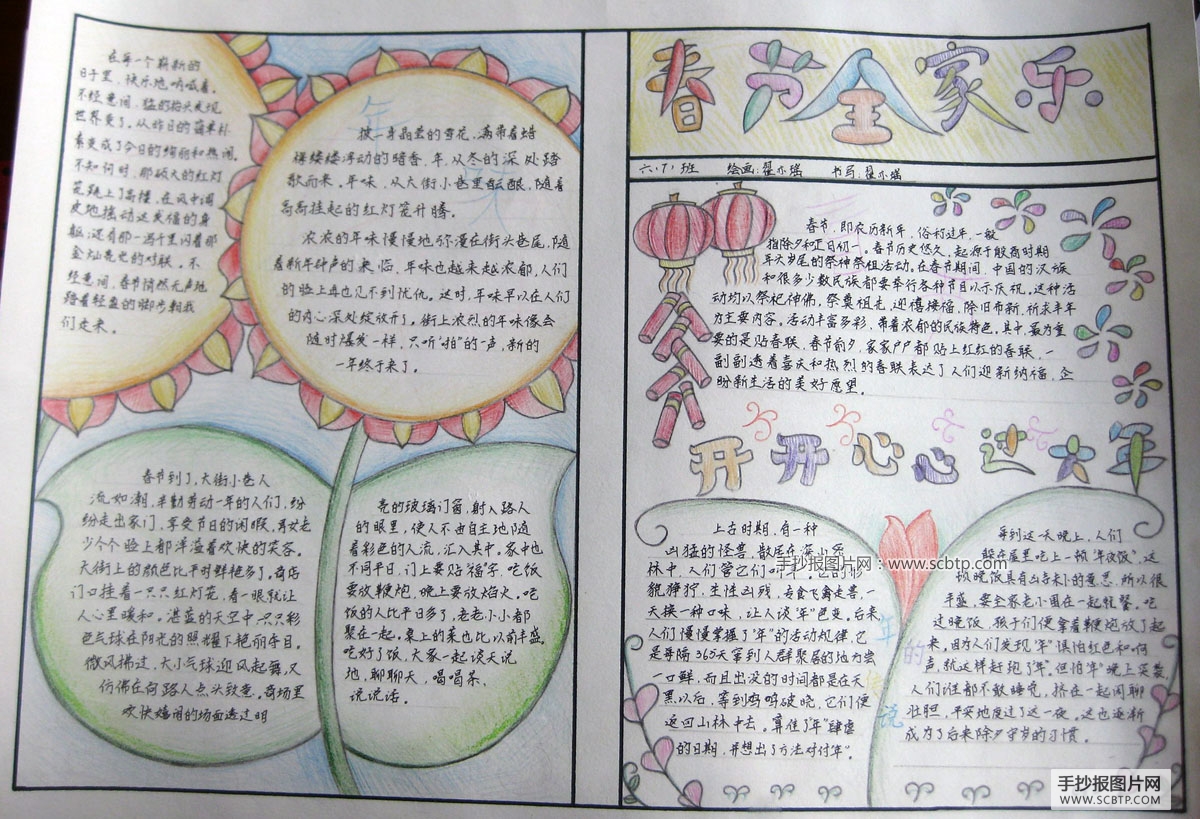 在每一个崭新的
日子里，快乐地呐喊着。
不经意间，猛的抬头发现，
世界变了。从昨日的简单朴
素变成了今日的绚丽和热闹。
不知何时，那硕大的红灯
笼跳上了高楼，在风中调
皮地摇动这发福的身
躯；还有那一遇千里闪着那
金灿亮光的对联。不
经意间，春节悄然无声地
踏着轻盈的脚步朝我
们走来。
年
味
披一身晶莹的雪花，满带着蜡
梅缕缕浮动的暗香，年从冬的深处踏
歌而来。年味，从大街小巷里酝酿，随着
高高挂起的红灯笼升腾。
浓浓的年味慢慢地弥漫在街头巷尾，随
着新年钟声的来临，年味也越来越浓郁，人们
的脸上再也见不到忧伤。这时，年味早以在人们
的内心深处绽放开了。街上浓烈的年味像会
随时爆发一样，只听"啪"的一声，新的
一年终于来了。
春节到了，大街小巷人
流如潮，辛勤劳动一年的人们，纷
纷走出家门，享受节日的闲暇，男女老
少个个脸上都洋溢着欢快的笑容。
大街上的颜色比平时鲜艳多了。商店
门口挂着一只只红灯笼，看一眼就让
人心里暖和。湛蓝的天空中一只只彩
色气球在阳光的照耀下艳丽夺目。
微风拂过，大小气球迎风起舞，又
仿佛在向路人点头致意。商场里
欢快嬉闹的场面透过明
亮的玻璃门窗，射入路人
的眼里，使人不由自主地随
着彩色的人流，汇入其中。家中也
不同平日，门上要贴"福"字，吃饭
要放鞭炮，晚上要放焰火。吃
饭的人比平日多了，老老小小都
聚在一起。桌上的菜也比以前丰盛。
吃好了饭，大家一起谈天说
地，聊聊天，喝喝茶，
说说话。
春节全家乐
六.7)班 绘画：翟亦瑶 书写：翟亦瑶
春节，即农历新年，俗称过年，一般
指除夕和正月初一。春节历史悠久，起源于殷商时期
年头岁尾的祭神祭祖活动。在春节期间，中国的汉族
和很多少数民族都要举行各种节目以示庆祝。这种活
动均以祭祀神佛，祭奠祖先，迎禧接福，除旧布新，祈求丰年
为主要内容。活动丰富多彩，带着浓郁的民族特色。其中，最为重
要的是贴春联，春节前夕，家家户户都贴上红红的春联，一
副副透着喜庆和热烈的春联表达了人们迎新纳福，企
盼新生活的美好愿望。
开开心心过大年
年
的
传
说
上古时期，有一种
凶猛的怪兽，散居在深山密
林中，人们管它们叫"年"。它的形
貌狰狞，生性凶残，专食飞禽走兽，一
天换一种口味，让人谈"年"色变。后来，
人们慢慢掌握了"年"的活动规律，它
是每隔365天窜到人群聚居的地方尝
一口鲜，而且出没的时间都是在天
黑以后，等到鸡鸣破晓，它们便
返回山林中去。算准了"年"肆虐
的日期，并想出了方法对付"年"。
每到这一天晚上，人们
躲在屋里吃上一顿"年夜饭"，这
顿晚饭具有凶吉未卜的意思，所以很
丰盛，要全家老小围在一起就餐。吃
过晚饭，孩子们便拿着鞭炮放了起
来。因为人们发现"年"惧怕红色和响
声，就这样赶跑了"年"。但怕"年"晚上突袭，
人们谁都不敢睡觉，挤在一起闲聊
壮胆，平安地度过了这一夜。这也逐渐
成为了后来除夕守岁的习惯。
手抄报图片网：www.scbtp.com
手抄报图片网
WWW.SCBTP.COM